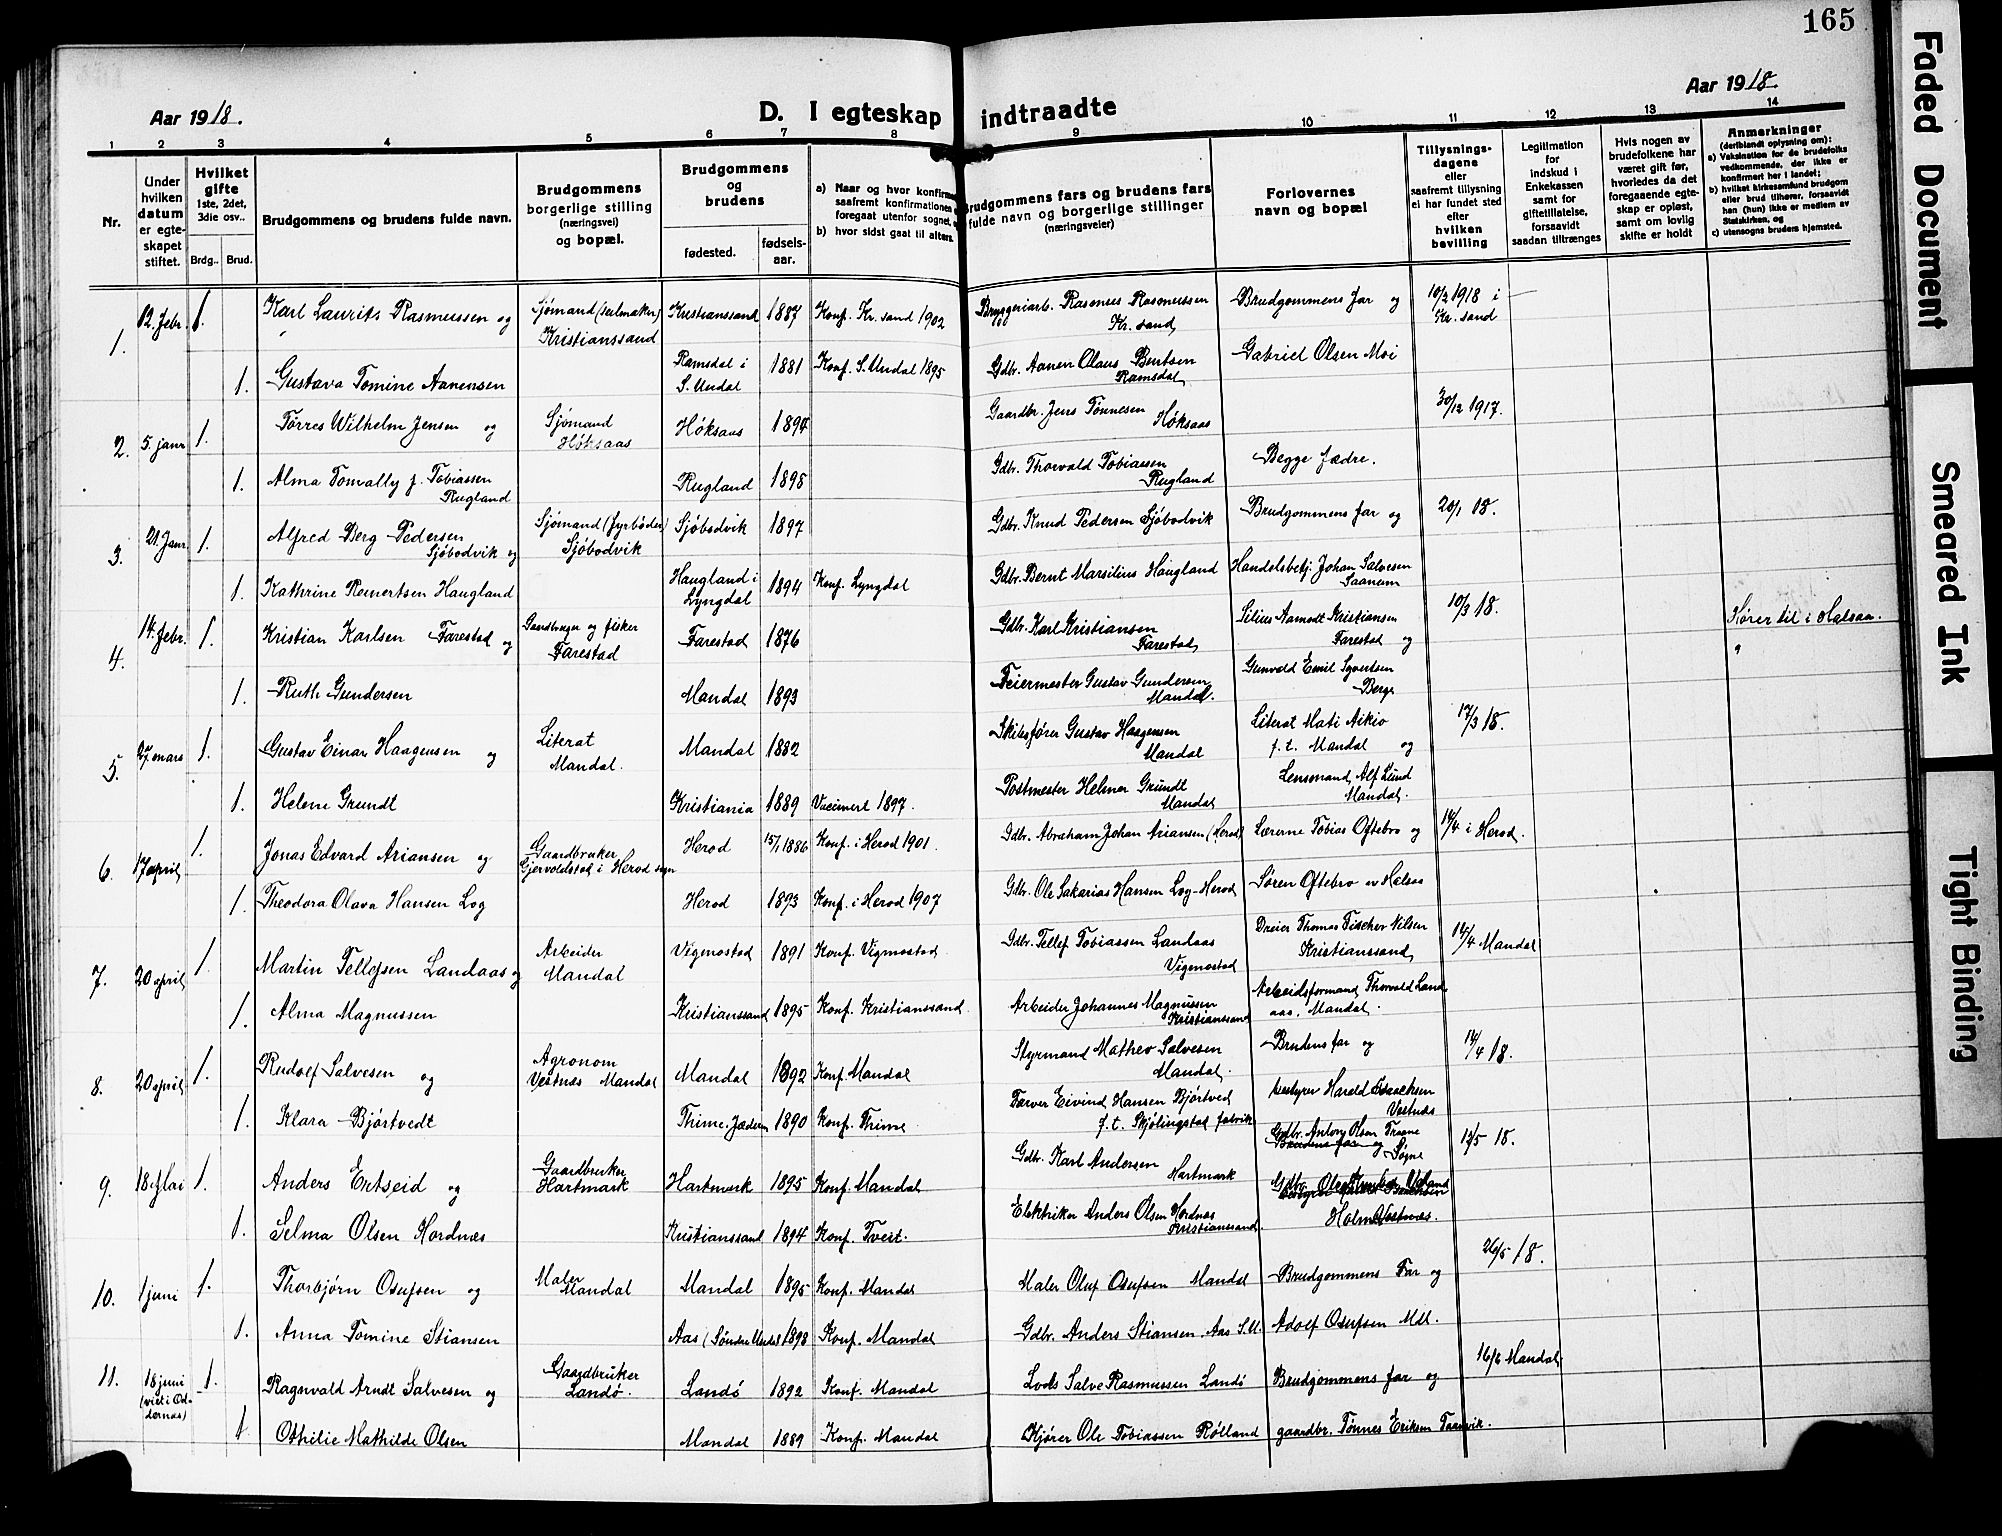 165
Aar 1918.
D. I egteskap indtraadte
Aar 1918.
1 2 3 4 5 6 7 8 9 10 11 12 13 14
Nr.
Under hvilken datum er egteskapet stiftet.
Hvilket gifte 1ste, 2det, 3die osv..
Brdg.. Brud.
Brudgommens og brudens fulde navn.
Brudgommens borgerlige stilling (næringsvei) og bopæl.
Brudgommens og brudens
fødested.
fødsels-aar.
a) Naar og hvor konfirm saafremt konfirmationen foregaat utenfor sognet,
b) hvor sidst gaat til alters.
Brudgommens fars og brudens fars fulde navn og borgerlige stillinger (næringsveier)
Forlovernes navn og bopæl
Tillysnings-dagene eller saafremt tillysning ei har fundet sted efter hvilken bevilling
Legitimation for indskud i Enkekassen samt for giftetillatelse, forsaavidt saadan tiltrænges
Hvis nogen av brudefolkene har været gift før, hvorledes da det foregaaende egteskap er opløst, samt om lovlig skifte er holdt
Anmerkninger (deriblandt oplysning om):
a) Vaksination for de brudefolks vedkommende, der ikke er konfirmert her i landet;
b) hvilket kirkesamfund brudgom eller brud tilhører, forsaavidt han (hun) ikke er medlem av Statskirken, og
c) utensogns bruders hjemsted.
1. 12. febr. 1. Karl Laurits Rasmussen og Sjømand (seilmaker) Kristianssand Kristianssand 1887 Konf. Kr.sand 1902 Bryggeriarb. Rasmus Rasmussen Kr.sand Brudgommens far og 10/2 1918 i Kr.sand
1. Gustava Tomine Aanensen Ramsdal i S. Undal 1881 Konf. S. Undal 1895 Gdbr. Aanen Olaus Bentsen Ramsdal Gabriel Olsen Moi
2. 5. janr 1. Tørres Wilhelm Jensen og Sjømand Høksaas Høksaas 1894 Gaardbr. Jens Tønnesen Høksaas 30/12 1917.
1. Alma Tomally f. Tobiassen Rugland Rugland 1898 Gdbr. Thorvald Tobiassen Rugland Begge fædre.
3. 21. janr 1. Alfred Berg Pedersen Sjøbodvik og Sjømand (fyrbøder) Sjøbodvik Sjøbodvik 1897 Gdbr. Knud Pedersen Sjøbodvik Brudgommens far og 20/1 18.
1. Kathrine Reinertsen Haugland Haugland i Lyngdal 1894 Konf. Lyngdal Gdbr. Bernt Marsilius Haugland Handelsbetj. Johan Salvesen Saanum
4. 14. febr. 1. Kristian Karlsen Farestad og Gaardbruger og fisker Farestad Farestad 1876 Gdbr. Karl Kristiansen Farestad Silius Aamodt Kristiansen Farestad og 10/3 18. Hører til i Halsaa.
1. Ruth Gundersen Mandal 1893 Feiermester Gustav Gundersen Mandal. Gunvald Emil Syvertsen Berge
5. 27 mars 1. Gustav Einar Haagensen og Literat Mandal. Mandal 1882 Skibsfører Gustav Haagensen Mandal Literat Mati Aikio f. t. Mandal og 17/3 18.
1. Helene Grundt Kristiania 1889 Vacinert 1897. Postmester Helmer Grundt Mandal Lensmand Alf Lund Mandal.
6. 17 april 1. Jonas Edvard Ariansen og Gaardbruker Gjervoldstad i Herod sogn Herod 15/1 1886 Konf. i Herod 1901. Gdbr. Abraham Johan Ariansen (Herod) Lærerne Tobias Oftebro og 14/4 i Herod.
1. Theodora Olava Hansen Log Herod 1893 Konf. i Herod 1907 Gdbr. Ole Sakarias Hansen Log-Herod Søren Oftebro av Halsaa
7. 20 april 1. Martin Tellefsen Landaas og Arbeider Mandal Vigmostad 1891 Konf. Vigmostad Gdbr. Tellef Tobiassen Landaas Vigmostad Dreier Thomas Fischer Nilsen Kristianssand 14/4 Mandal
1. Alma Magnussen Kristianssand 1895 Konf. Kristianssand. Arbeider Johannes Magnussen Kristianssand Arbeidsformand Thorvald Landaas, Mandal.
8. 20 april 1. Rudolf Salvesen og Agronom Vestnes Mandal Mandal 1892 Konf. Mandal Styrmand Matheo Salvesen Mandal. Brudens far og 14/4 18.
1. Klara Bjørtvedt Thime, Jæderen 1890 Konf. Thime Farver Eivind Hansen Bjørtved f. t. Skjølingstad fabrik bestyrer Harald Isaachsen Vestnæs
9. 18 Mai 1. Anders Ertseid og Gaardbruker Hartmark Hartmark 1895 Konf. Mandal Gdbr. Karl Andersen Hartmark Gdbr. Antony Olsen Traane Søgne 12/5 18.
1. Selma Olsen Hordnæs Kristianssand 1894 Konf. Tveit. Elektriker Anders Olsen Hordnæs Kristianssand. Gdbr. Ole Holm
10. 1 juni 1. Thorbjørn Osufsen og Maler Mandal Mandal 1895 Konf. Mandal Maler Oluf Osufsen Mandal Brudgommens Far og 26/5 18.
1. Anna Tomine Stiansen Aas (Søndre Undal) 1898 Konf. Mandal Gdbr. Anders Stiansen, Aas S.U. Adolf Osufsen Mdl.
11. 18 juni (viet i Oddernæs) 1. Ragnvald Arndt Salvesen og Gaardbruker Landø. Landø 1892 Konf. Mandal Lods Salve Rasmussen Landø Brudgommens far og 16/6 Mandal
1. Othilie Mathilde Olsen Mandal 1889 Konf. Mandal Kjører Ole Tobiassen Rølland gaardbr. Tønnes Eriksen Taanevik.
Faded Document
Smeared Ink
Tight Binding